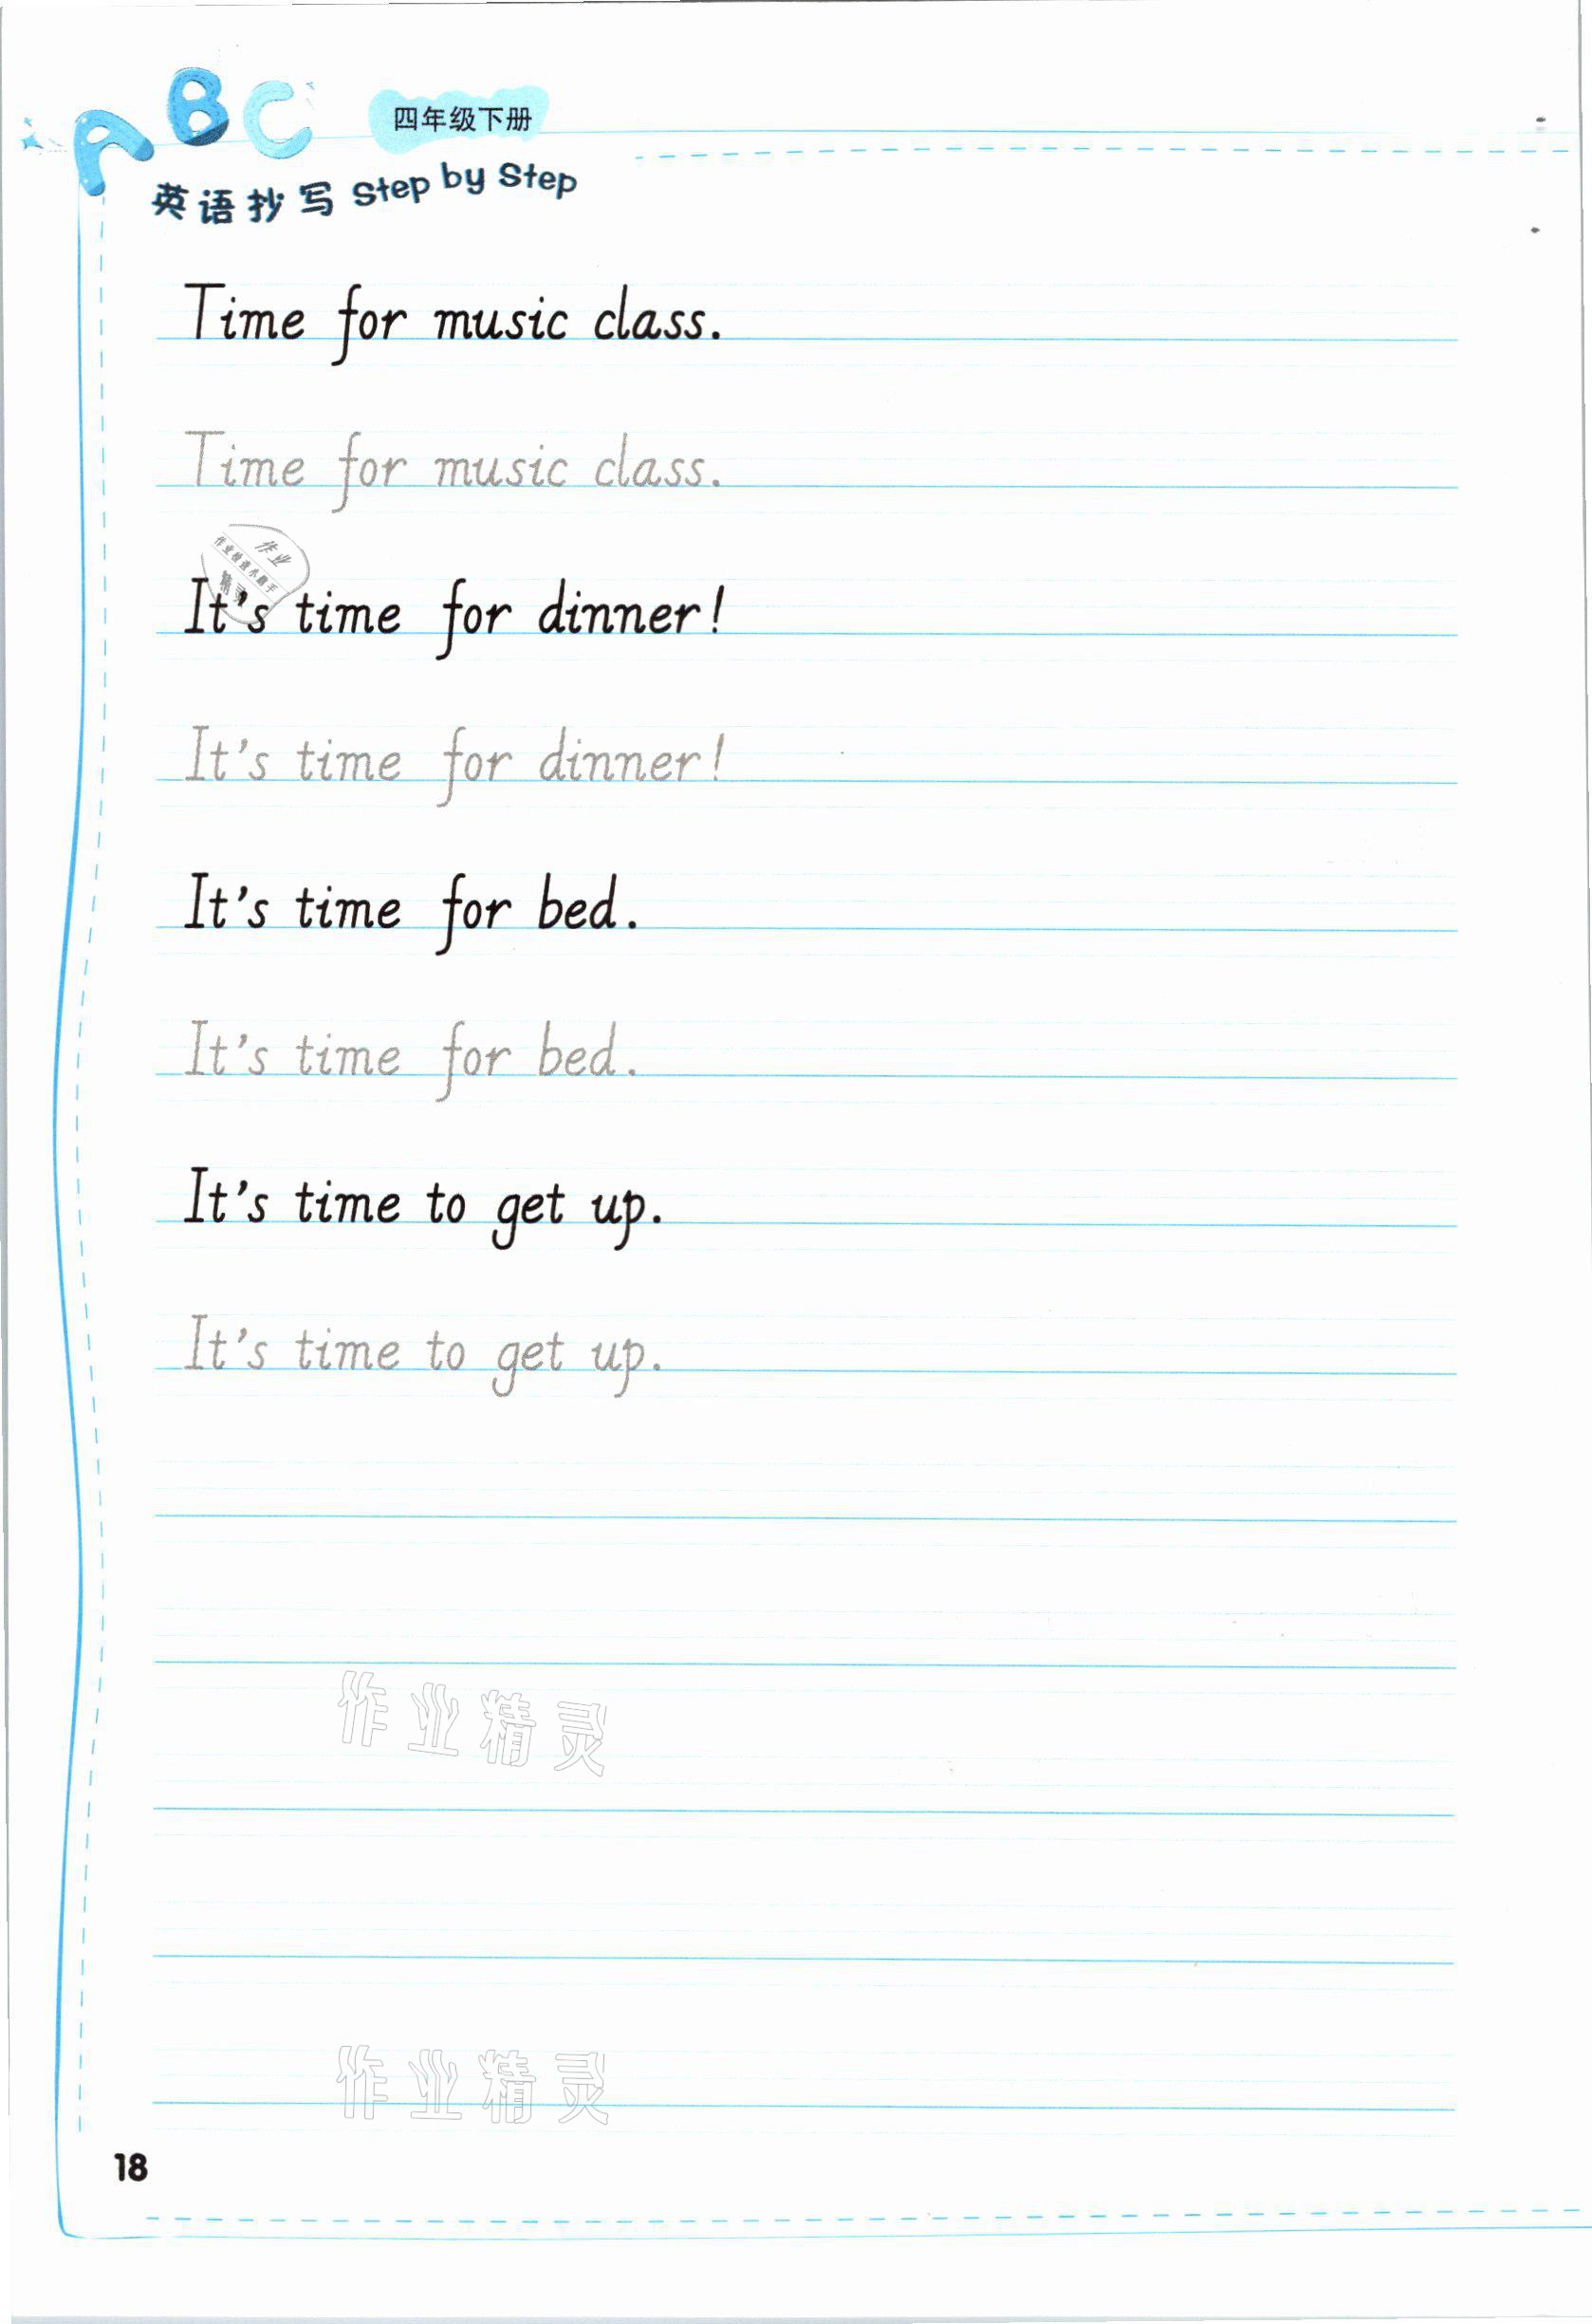 ABC
四年级下册
英语抄写 Step by Step
Time for music class.
Time for music class.
作业
作业检查小助手
精灵
It's time for dinner!
It's time for dinner!
It's time for bed.
It's time for bed.
It's time to get up.
It's time to get up.
作业精灵
作业精灵
18